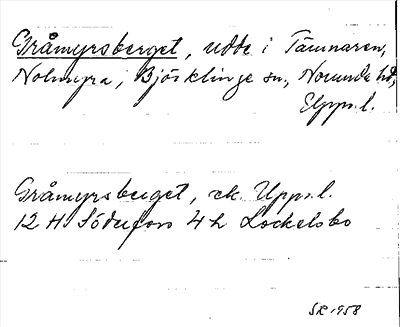 Gråmyrsberget, udde i Tämnaren,
Nolmyra, Björklinge sn, Norunda hd,
Upps.l.
Gråmyrsberget, ek. Upps.l.
12 H Söderfors 4 h Lockelsbo
SR 1958